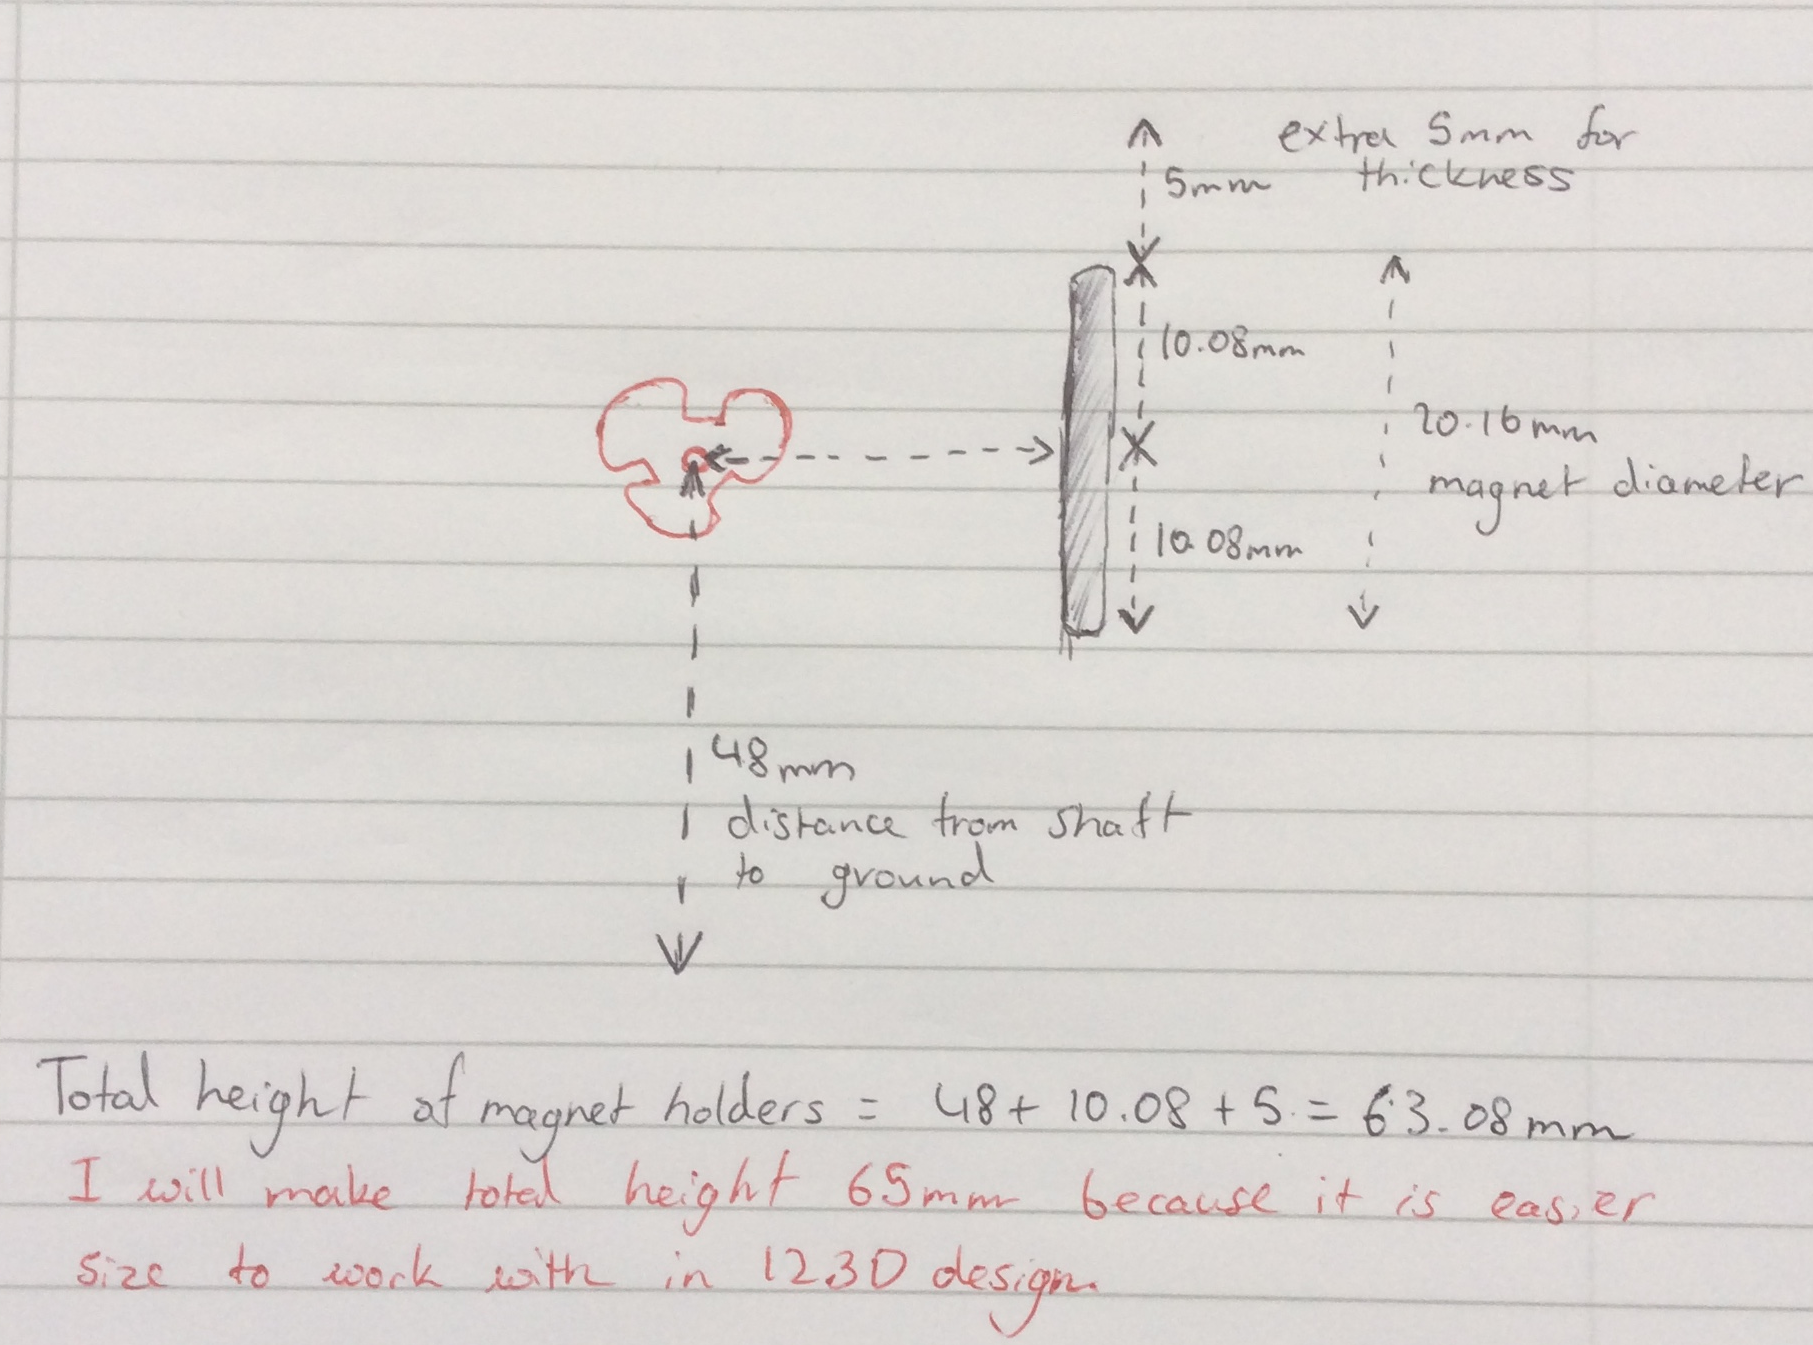 extra 5mm for
thickness
5mm
10.08mm
20.16mm
magnet diameter
10.08mm
48mm
distance from shaft
to ground
Total height of magnet holders = 48 + 10.08 + 5 = 63.08mm
I will make total height 65mm because it is easier
size to work with in 123D design.